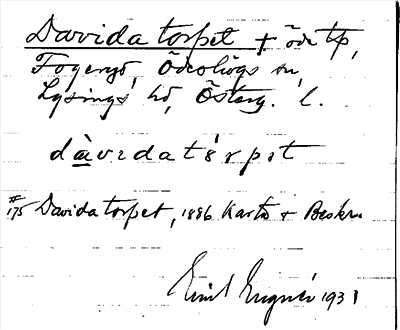 Davida torpet + öde tp,
Fogeryd, Ödeshögs sn,
Lysings hd, Österg. l.
dàvidatšrpet
#175 Davidatorpet, 1886 Karta + Beskr.
Emil 1931